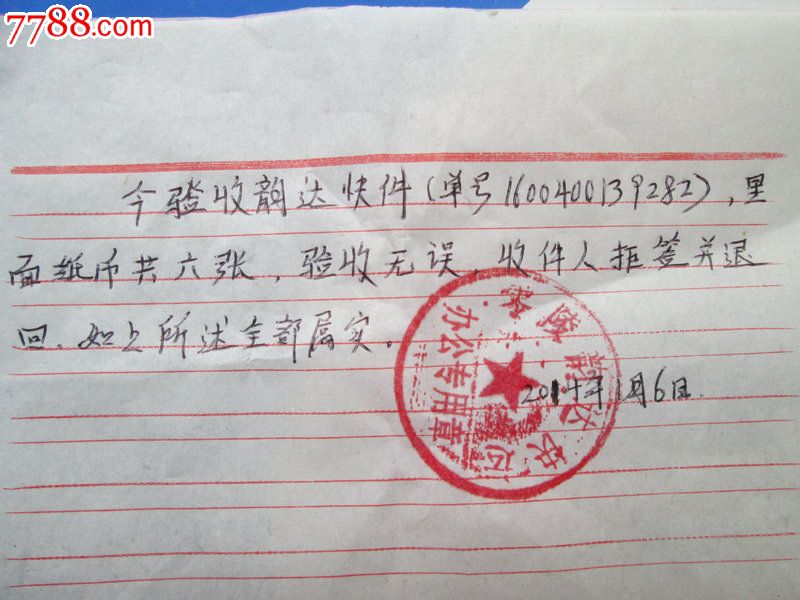 7788.com
今验收韵达快件(单号1600400139282),里
面纸币共六张,验收无误,收件人拒签并退
回.如上所述全部属实。
2014年1月6日
韵达快运
办公专用章